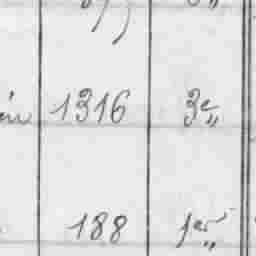 1316 3e„
188 1er„